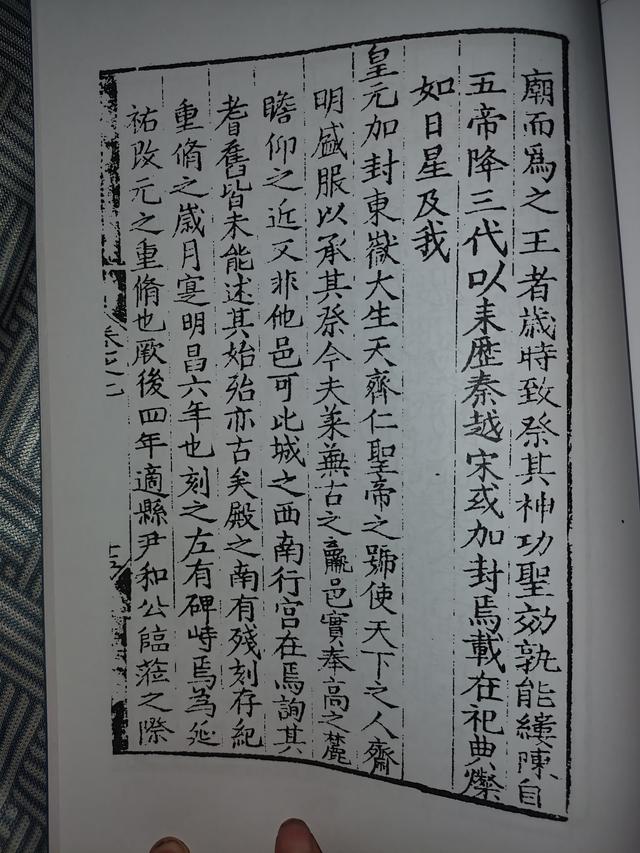 廟而爲之王者歲時致祭其神功聖効孰能縷陳自
五帝降三代以来歷秦越宋或加封焉載在祀典燦
如日星及我
皇元加封東嶽大生天齊仁聖帝之號使天下之人齋
明盛服以承其祭今夫萊蕪古之嬴邑實奉高之麓
瞻仰之近又非他邑可比城之西南行宫在焉詢其
耆舊皆未能述其始殆亦古矣殿之南有殘刻存紀
重脩之歲月寔明昌六年也刻之左有碑峙焉為延
祐改元之重脩也厥後四年適縣尹和公臨蒞之際
卷之七